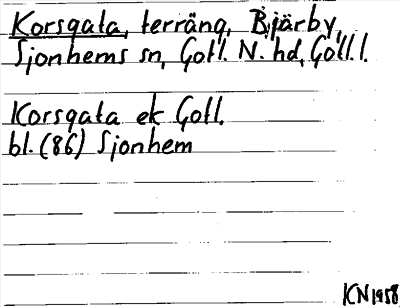 Korsgata, terräng, Bjärby,
Sjonhems sn, Gotl. N. hd, Gotl. l.
Korsgata ek Gotl.
bl. (86) Sjonhem
KN 1958